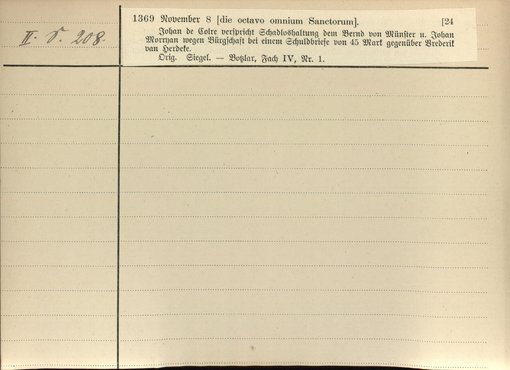 II. S. 208.
1369 November 8 [die octavo omnium Sanctorum]. [24
Johan de Colre verspricht Schadloshaltung dem Bernd von Münster u. Johan
Morryan wegen Bürgschaft bei einem Schuldbriefe von 45 Mark gegenüber Brederik
van Herdeke.
Orig. Siegel. — Botzlar, Fach IV, Nr. 1.